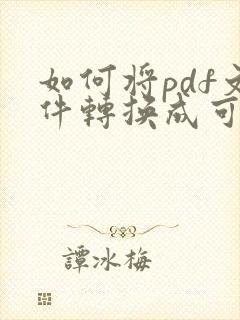 如何将pdf文
件轉換成可
譚冰梅